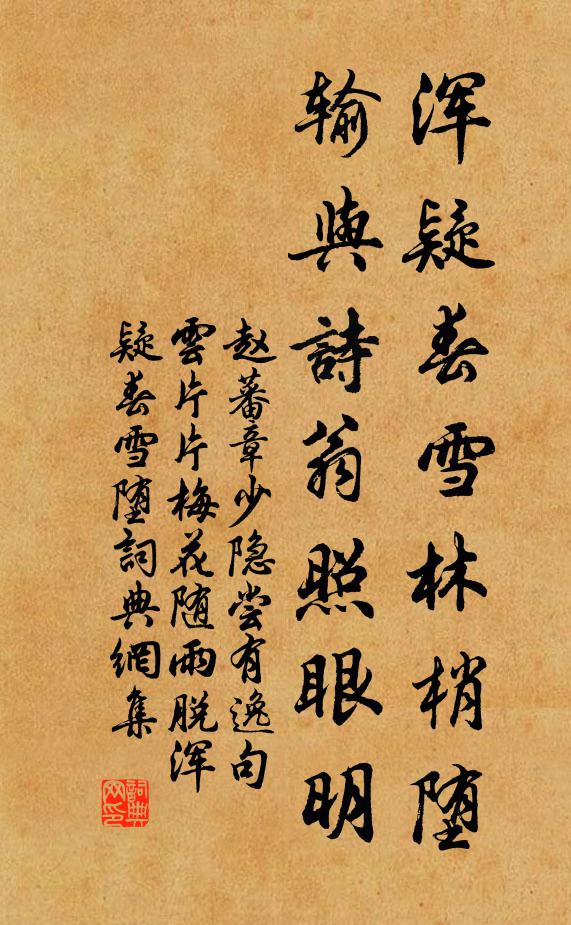 浑疑春雪林梢堕
输與詩翁照眼明
赵蕃章少隐尝有逸句
雲片片梅花随雨脱浑
疑春雪堕詞典網集
詞典网印